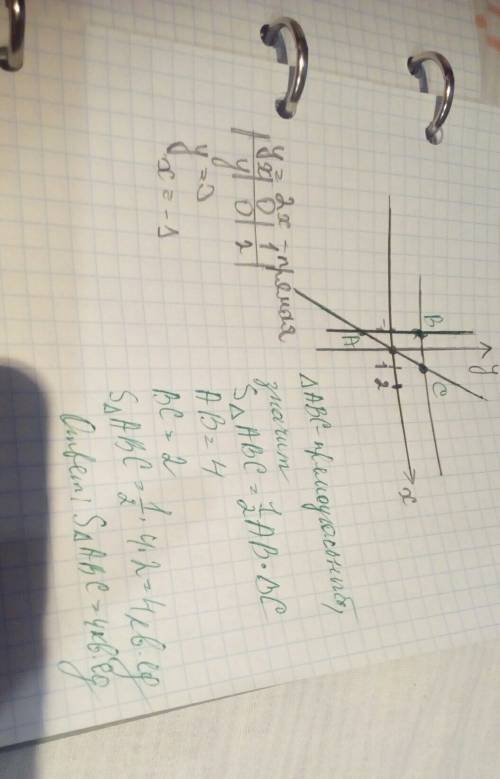 y = 2x - прямая
x | 0 | 1 |
y | 0 | 2 |
y = 2
x = -1
y
B
C
A
1 2
x
ΔABC - прямоугольный,
значит
SΔABC = 1/2 AB·BC
AB = 4
BC = 2
SΔABC = 1/2 · 4 · 2 = 4 кв. ед
Ответ: SΔABC = 4 кв. ед